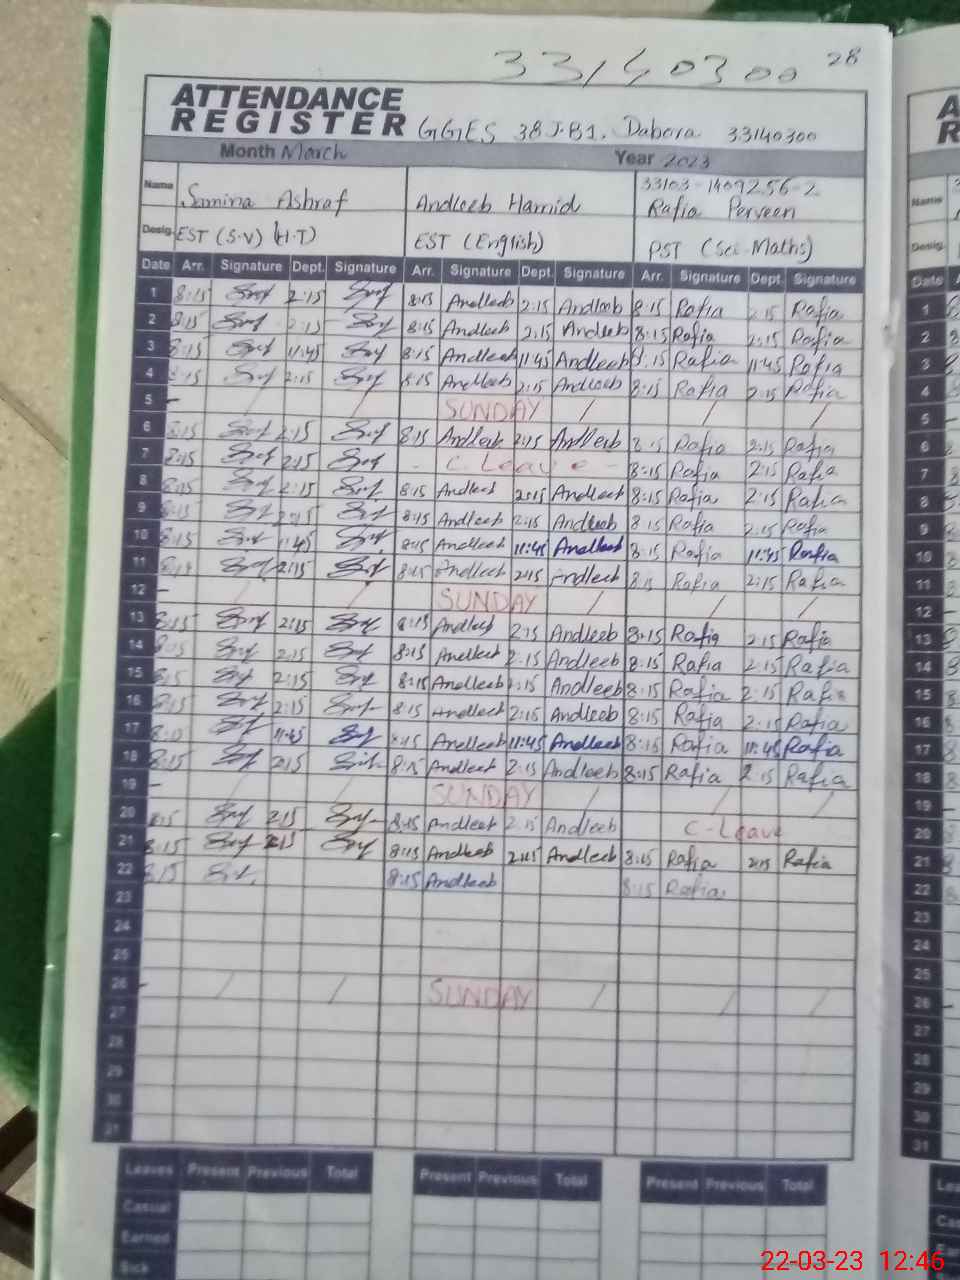 28
33140300
ATTENDANCE
REGISTER GGES 38 J.B1. Dabora 33140300
Month March Year 2023
Name Samina Ashraf Andleeb Hamid 33103-1409256-2
Rafia Perveen
Desig. EST (S.V) (H.T) EST (English) PST (Sci-Maths)
Date Arr. Signature Dept. Signature Arr. Signature Dept. Signature Arr. Signature Dept. Signature
1 8:15 2:15 8:15 Andleeb 2:15 Andleeb 8:15 Rafia 2:15 Rafia
2 8:15 2:15 8:15 Andleeb 2:15 Andleeb 8:15 Rafia 2:15 Rafia
3 8:15 11:45 8:15 Andleeb 11:45 Andleeb 8:15 Rafia 11:45 Rafia
4 8:15 2:15 8:15 Andleeb 2:15 Andleeb 8:15 Rafia 2:15 Rafia
5 - / / SUNDAY / / /
6 8:15 2:15 8:15 Andleeb 2:15 Andleeb 8:15 Rafia 2:15 Rafia
7 8:15 2:15 - C. Leave - 8:15 Rafia 2:15 Rafia
8 8:15 2:15 8:15 Andleeb 2:15 Andleeb 8:15 Rafia 2:15 Rafia
9 8:15 2:15 8:15 Andleeb 2:15 Andleeb 8:15 Rafia 2:15 Rafia
10 8:15 11:45 8:15 Andleeb 11:45 Andleeb 8:15 Rafia 11:45 Rafia
11 2:15 8:15 Andleeb 2:15 Andleeb 8:15 Rafia 2:15 Rafia
12 - / / SUNDAY / / /
13 8:15 2:15 8:15 Andleeb 2:15 Andleeb 8:15 Rafia 2:15 Rafia
14 8:15 2:15 8:15 Andleeb 2:15 Andleeb 8:15 Rafia 2:15 Rafia
15 8:15 2:15 8:15 Andleeb 2:15 Andleeb 8:15 Rafia 2:15 Rafia
16 8:15 2:15 8:15 Andleeb 2:15 Andleeb 8:15 Rafia 2:15 Rafia
17 8:15 11:45 8:15 Andleeb 11:45 Andleeb 8:15 Rafia 11:45 Rafia
18 8:15 2:15 8:15 Andleeb 2:15 Andleeb 8:15 Rafia 2:15 Rafia
19 - / / SUNDAY / / /
20 8:15 2:15 8:15 Andleeb 2:15 Andleeb C-Leave
21 8:15 2:15 8:15 Andleeb 2:15 Andleeb 8:15 Rafia 2:15 Rafia
22 8:15 8:15 Andleeb 8:15 Rafia
23
24
25
26 - / / SUNDAY / / /
27
28
29
30
31
Leaves Present Previous Total Present Previous Total Present Previous Total
Casual
Earned
Sick
A
R
Name
Desig.
Date
1
2
3
4
5
6
7
8
9
10
11
12
13
14
15
16
17
18
19
20
21
22
23
24
25
26
27
28
29
30
31
22-03-23 12:46